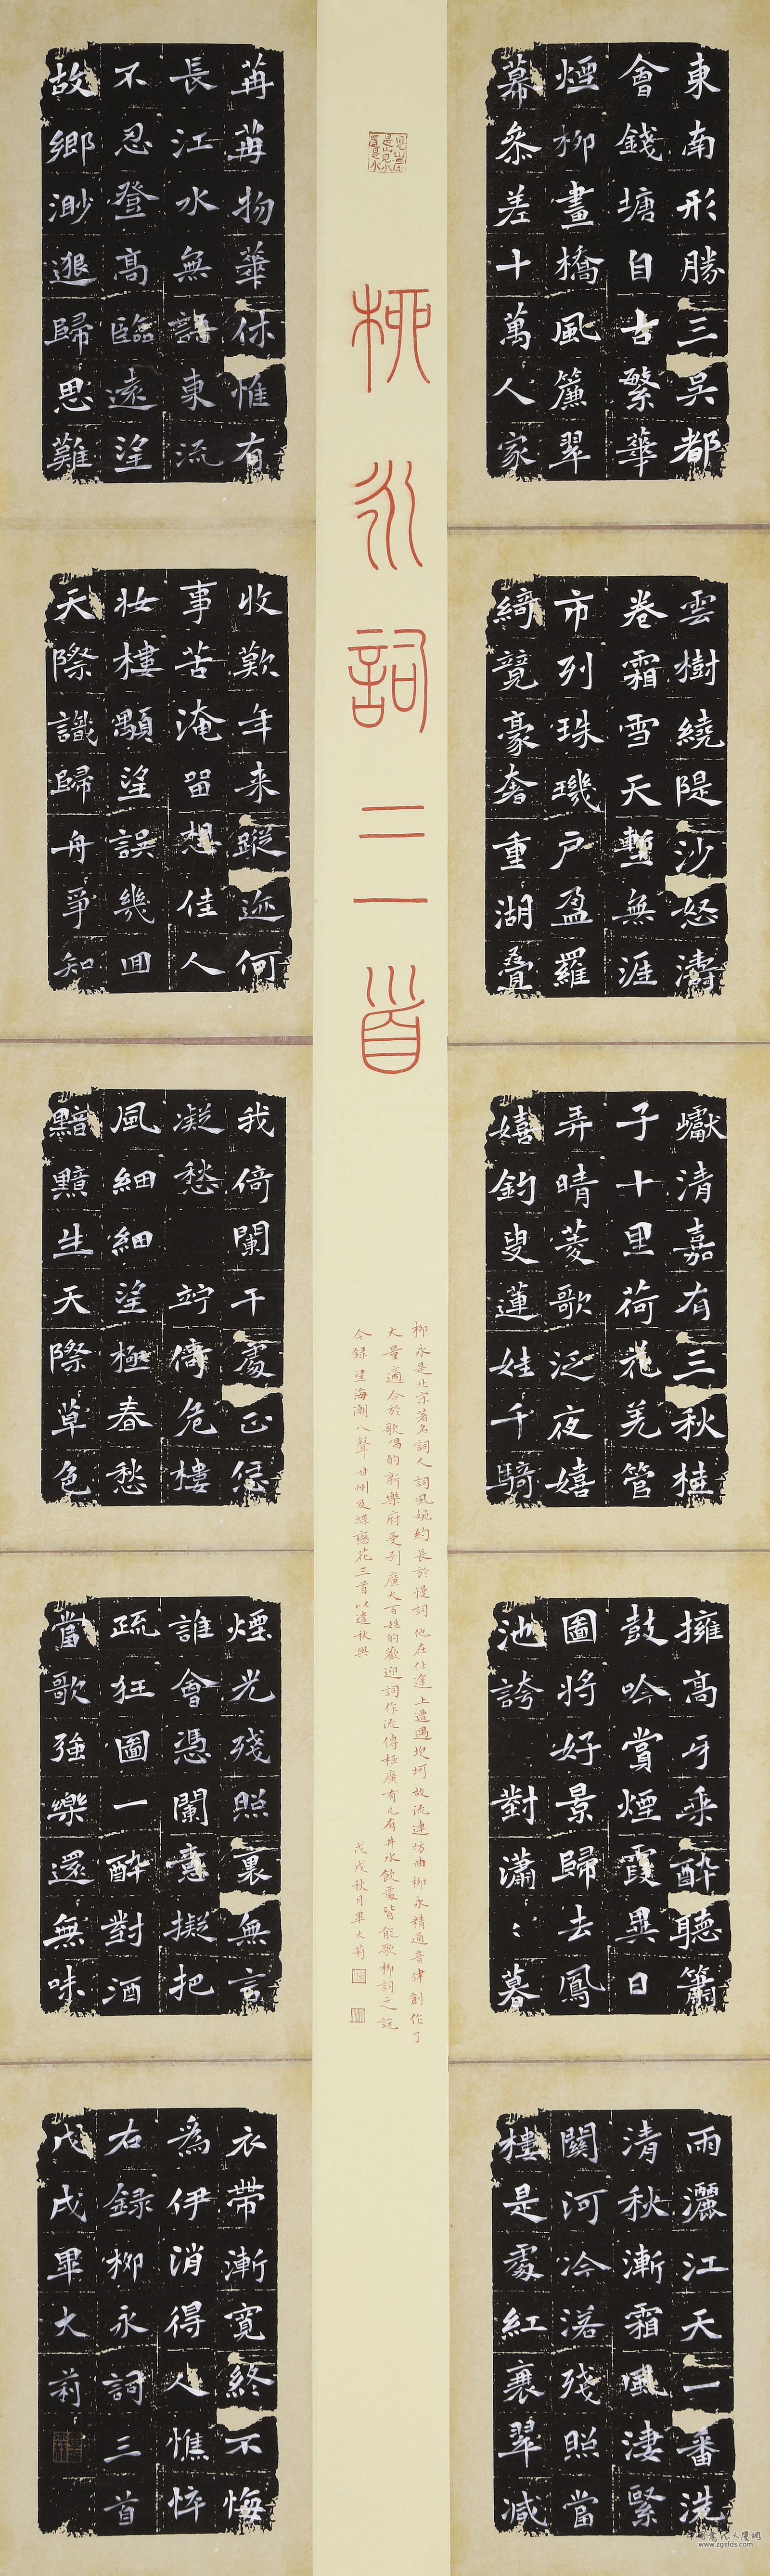 東南形勝三吳都
會錢塘自古繁華
煙柳畫橋風簾翠
幕叅差十萬人家
雲樹繞隄沙怒濤
卷霜雪天塹無涯
市列珠璣戶盈羅
綺競豪奢重湖疊
巘清嘉有三秋桂
子十里荷花羌管
弄晴菱歌泛夜嬉
嬉釣叟蓮娃千騎
擁高牙乘醉聽簫
鼓吟賞煙霞異日
圖將好景歸去鳳
池誇 對瀟〻暮
雨灑江天一番洗
清秋漸霜風淒緊
關河冷落殘照當
樓是處紅衰翠減
柳永詞三首
柳永是北宋著名詞人詞風婉約長於慢詞他在仕途上遭遇坎坷故流連坊曲柳永精通音律創作了
大量適合於歌唱的新樂府受到廣大百姓的歡迎詞作流傳極廣有凡有井水飲處皆能歌柳詞之說
今錄望海潮八聲甘州及蝶戀花三首以遣秋興 戊戌秋月畢大莉
苒苒物華休惟有
長江水無語東流
不忍登高臨遠望
故鄉渺邈歸思難
收歎年来蹤迹何
事苦淹留想佳人
妝樓顒望誤幾回
天際識歸舟爭知
我倚闌干處正恁
凝愁 竚倚危樓
風細細望極春愁
黯黯生天際草色
煙光殘照裏無言
誰會憑闌意擬把
疏狂圖一醉對酒
當歌強樂還無味
衣帶漸寬終不悔
為伊消得人憔悴
右錄柳永詞三首
戊戌畢大莉
www.zgsfds.com